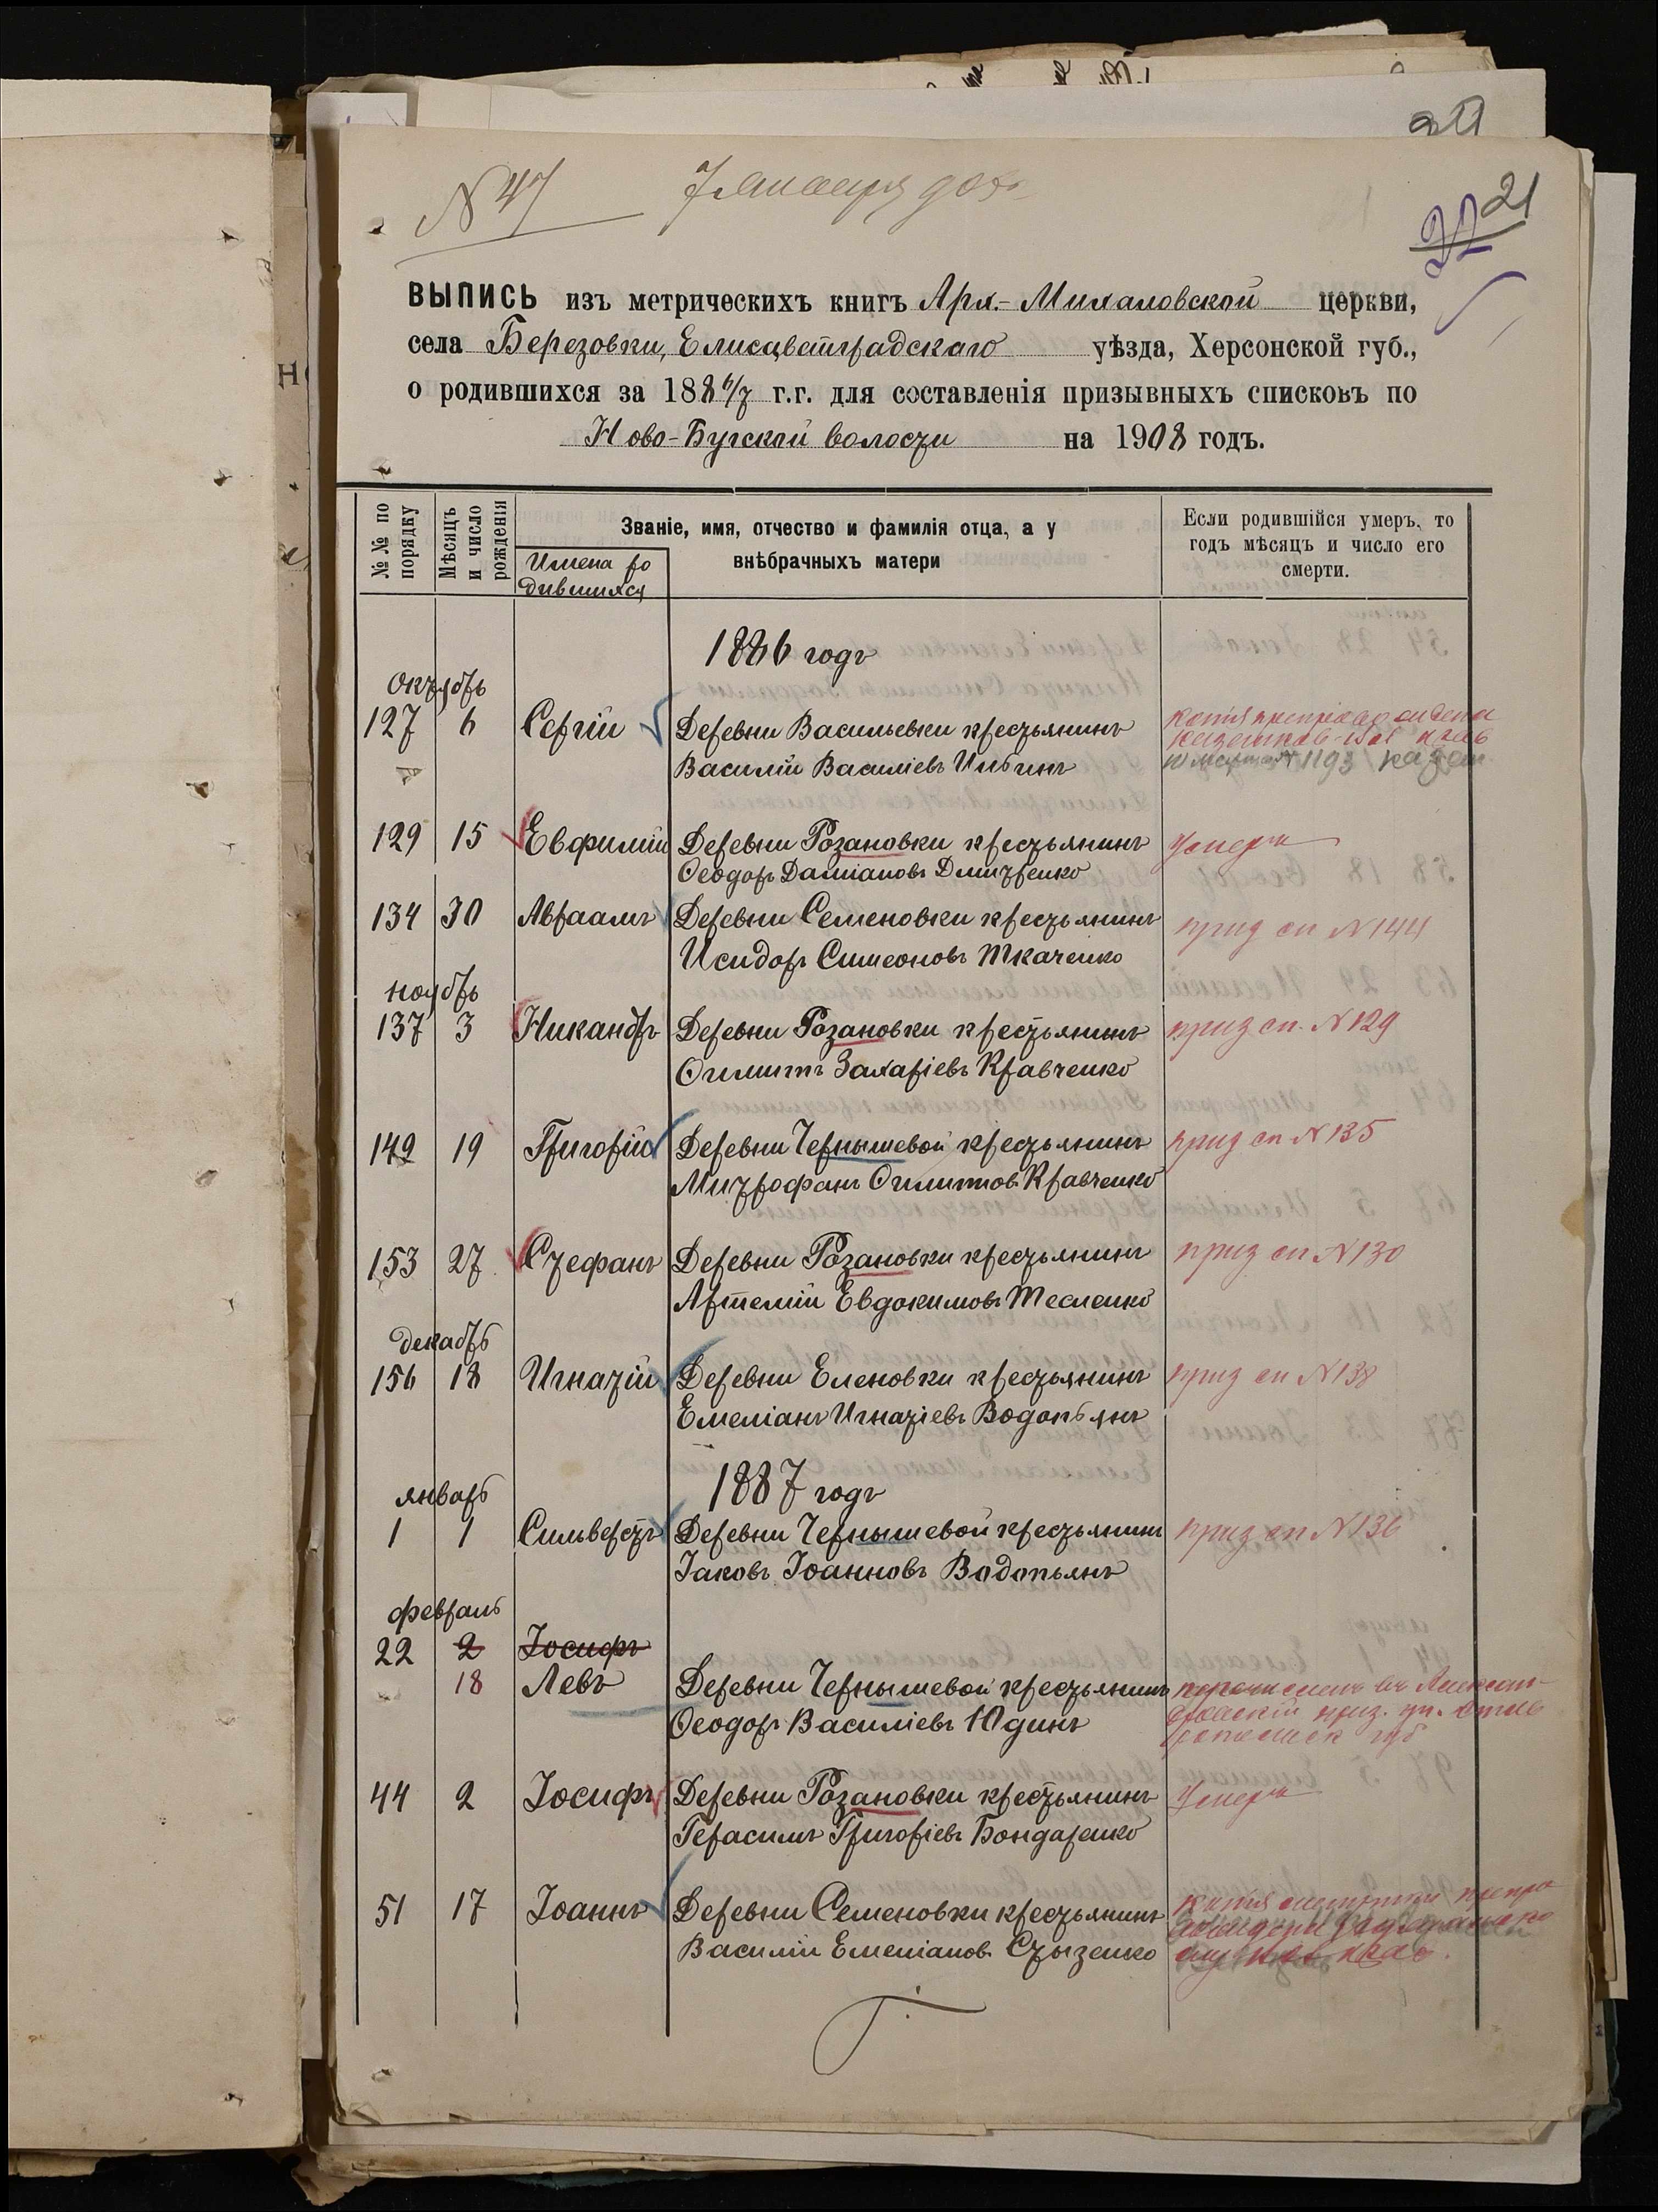 21
№ 47 7 января 905
21
ВЫПИСЬ изъ метрическихъ книгъ Арх.-Михаловской церкви,
села Березовки, Елисаветградскаго уѣзда, Херсонской губ.,
о родившихся за 1886/7 г.г. для составленія призывныхъ списковъ по
Ново-Бугской волости на 1908 годъ.
№ № по порядку
Мѣсяцъ и число рожденія
Имена родившихся
Званіе, имя, отчество и фамилія отца, а у
внѣбрачныхъ матери
Если родившійся умеръ, то
годъ мѣсяцъ и число его
смерти.
1886 годъ
октябрь
127 6 Сергій Деревни Васильевки крестьянинъ
Василій Василіевъ
№ 1193
129 15 Евфимій Деревни Розановки крестьянинъ Умеръ
Ѳеодоръ Даміановъ Дмитренко
134 30 Авраамъ Деревни Семеновки крестьянинъ
Исидоръ Симеоновъ Ткаченко приз сп N 144
ноябрь
137 3 Никандръ Деревни Розановки крестьянинъ приз сп. N 129
Филиппъ Захаріевъ Кравченко
149 19 Григорій Деревни Чернышевой крестьянинъ приз сп N 135
Митрофанъ Филиппов Кравченко
153 27 Стефанъ Деревни Розановки крестьянинъ приз сп N 130
Артемій Евдокимовъ Тесленко
декабрь
156 18 Игнатій Деревни Еленовки крестьянинъ приз сп N 138
Емеліанъ Игнатіевъ Водопьянъ
1887 годъ
январь
1 1 Сильверстъ Деревни Чернышевой крестьянинъ приз сп N 136
Іаковъ Іоанновъ Водопьянъ
февраль
22 2 Іосифъ
18 Левъ Деревни Чернышевой крестьянинъ перечисленъ въ Алексан-
Ѳеодоръ Василіевъ Юдинъ
44 2 Іосифъ Деревни Розановки крестьянинъ Умеръ
Герасимъ Григоріевъ Бондаренко
51 17 Іоаннъ Деревни Семеновки крестьянинъ
Василій Емеліанов Стызенко